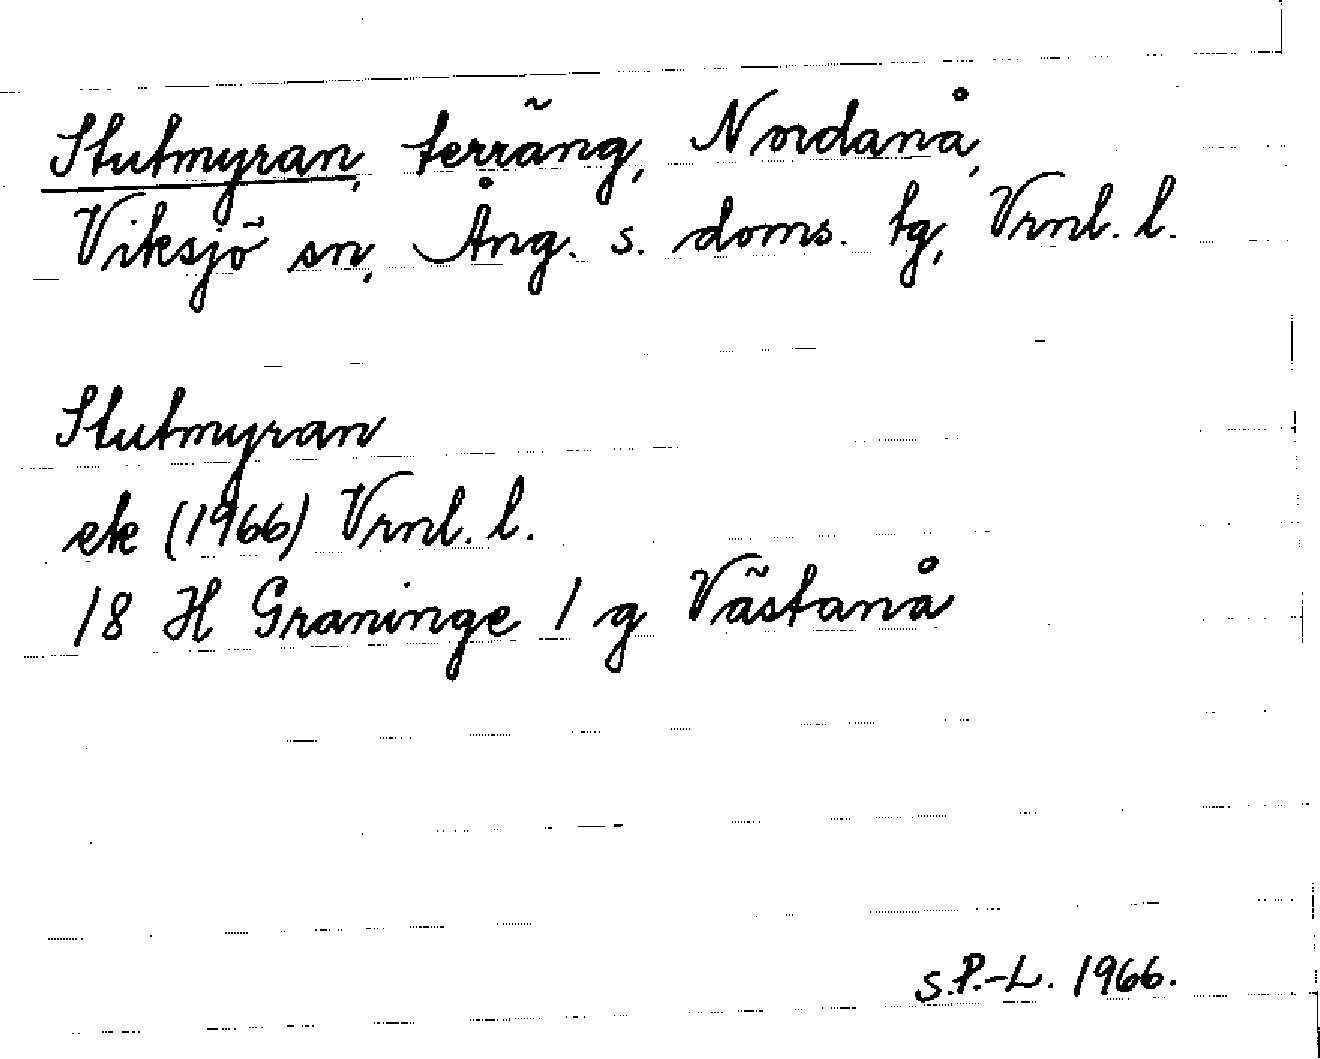 Stutmyran, terräng, Nordanå,
Viksjö sn, Ång. s. doms. tg, Vrnl. l.
Stutmyran
ek (1966) Vrnl. l.
18 H Graninge 1 g Västanå
S.P.-L. 1966.